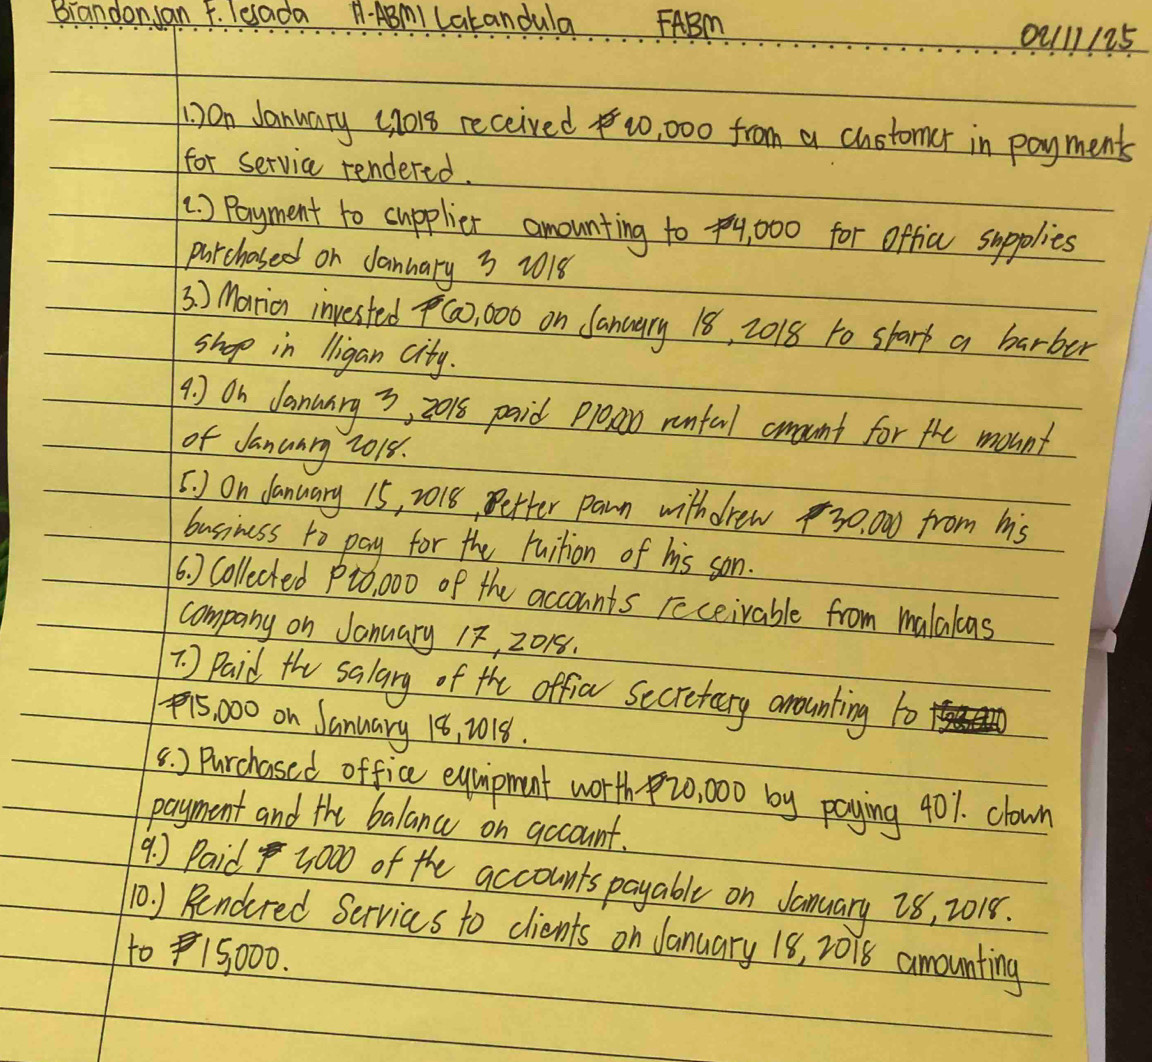 Brandonjan F. Tesada 11-ABM1 Lakandula FABM 02/11/25
1.) On January 2,2018 received ₱20,000 from a customer in payments
for service rendered.
2.) Payment to supplier amounting to ₱4,000 for office supplies
purchased on January 3 2018
3.) Maria invested on January 18, 2018 to start a barber
shop in Iligan City.
4.) On January 3, 2018 paid P10,000 rental amount for the mount
of January 2018.
5.) On January 15, 2018, Petter Paun withdrew ₱30,000 from his
business to pay for the tuition of his son.
6.) Collected of the accounts receivable from malakas
company on January 17, 2018.
7.) Paid the salary of the office secretary amounting to
₱15,000 on January 18, 2018.
8.) Purchased office equipment worth ₱20,000 by paying 40% down
payment and the balance on account.
9.) Paid of the accounts payable on January 28, 2018.
10.) Rendered Services to clients on January 18, 2018 amounting
to ₱15,000.